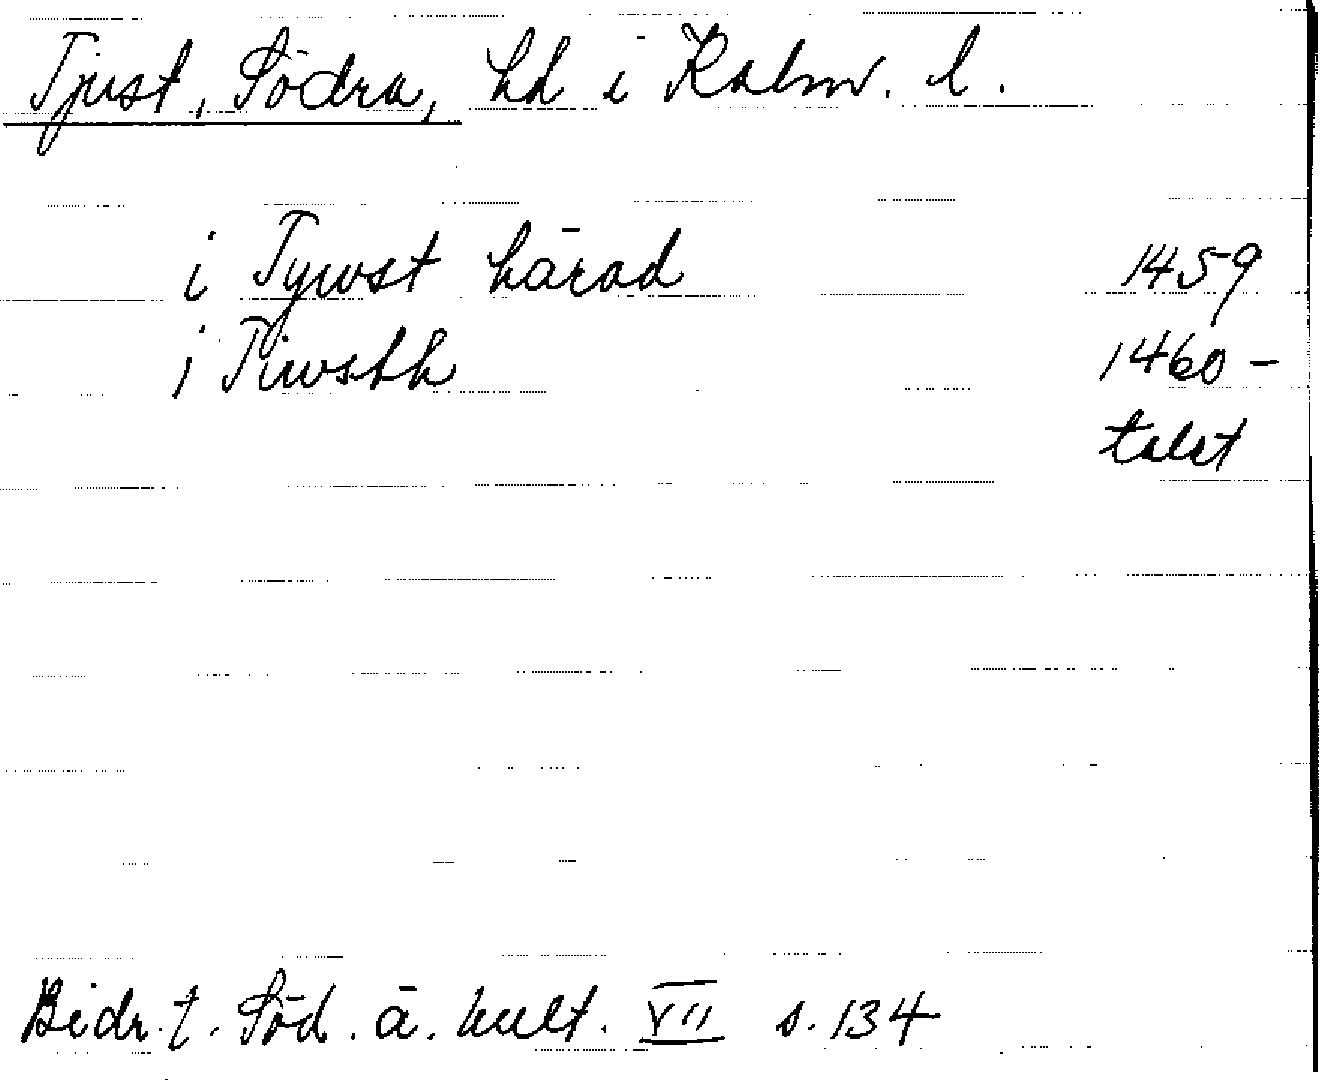 Tjust, Södra, hd i Kalm. l.
i Tywst härad 1459
i Tiwsth 1460-
talet
Bidr. t. Söd. ä. kult. VII s. 134